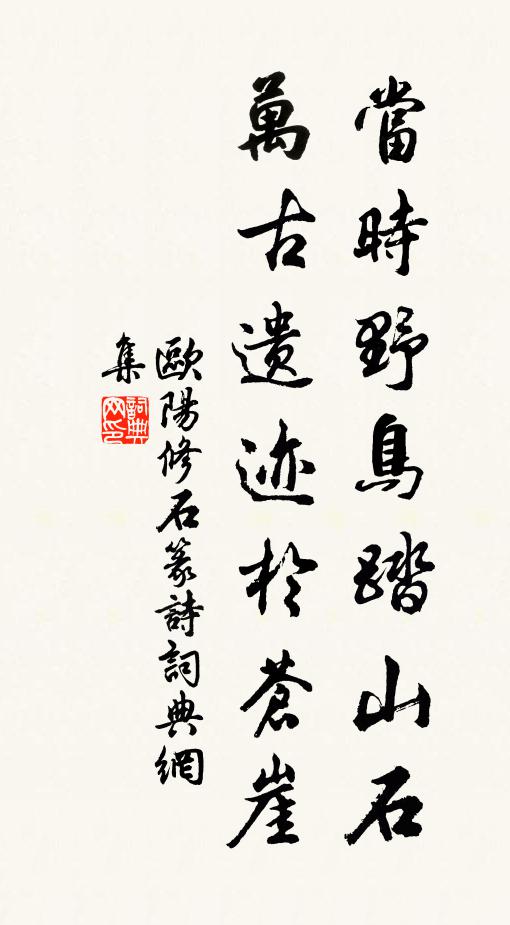 當時野鳥踏山石
萬古遺迹於蒼崖
歐陽修石篆詩詞典網
集
詞典
网印